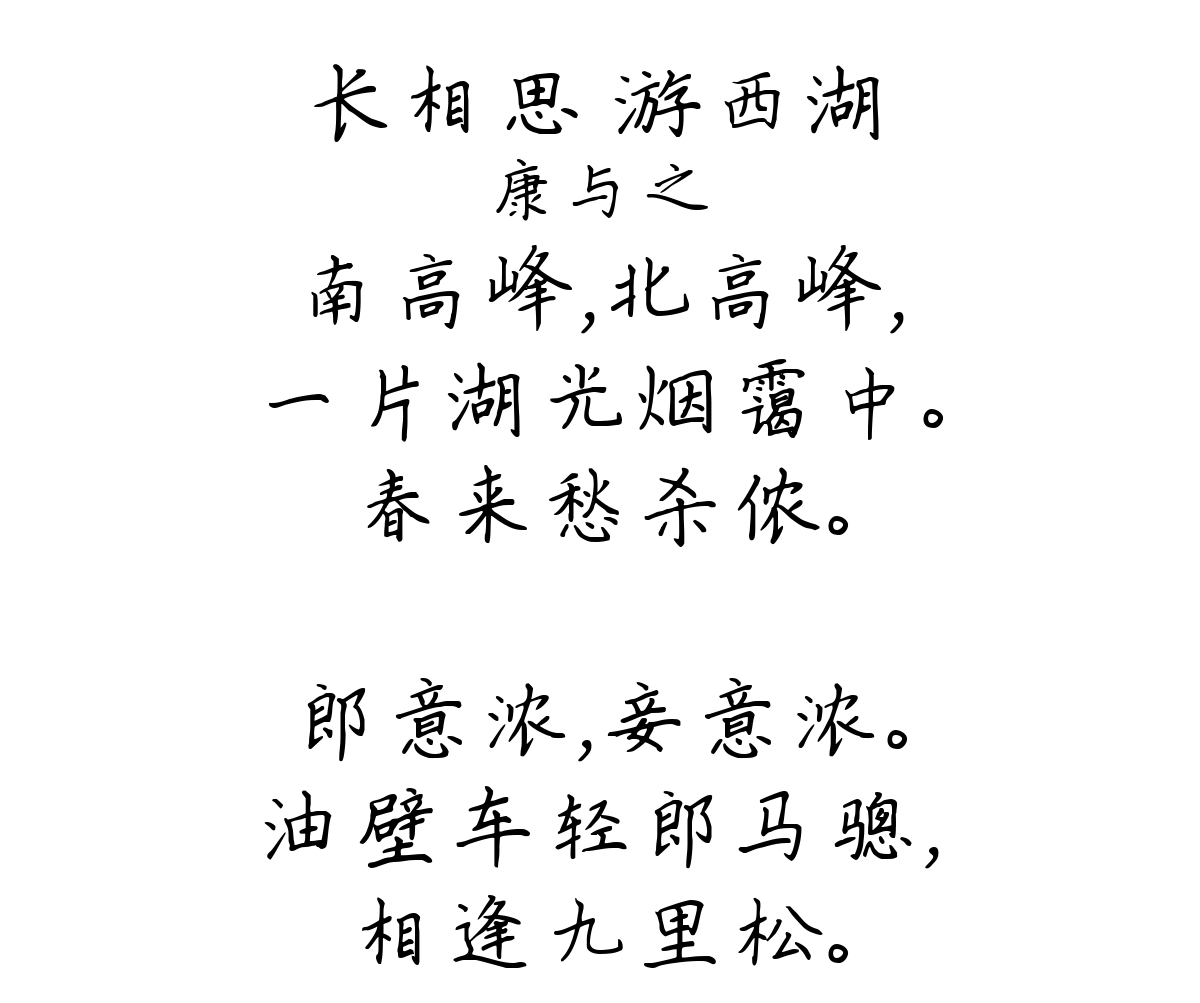 长相思 游西湖
康与之
南高峰,北高峰,
一片湖光烟霭中。
春来愁杀侬。
郎意浓,妾意浓。
油壁车轻郎马骢,
相逢九里松。